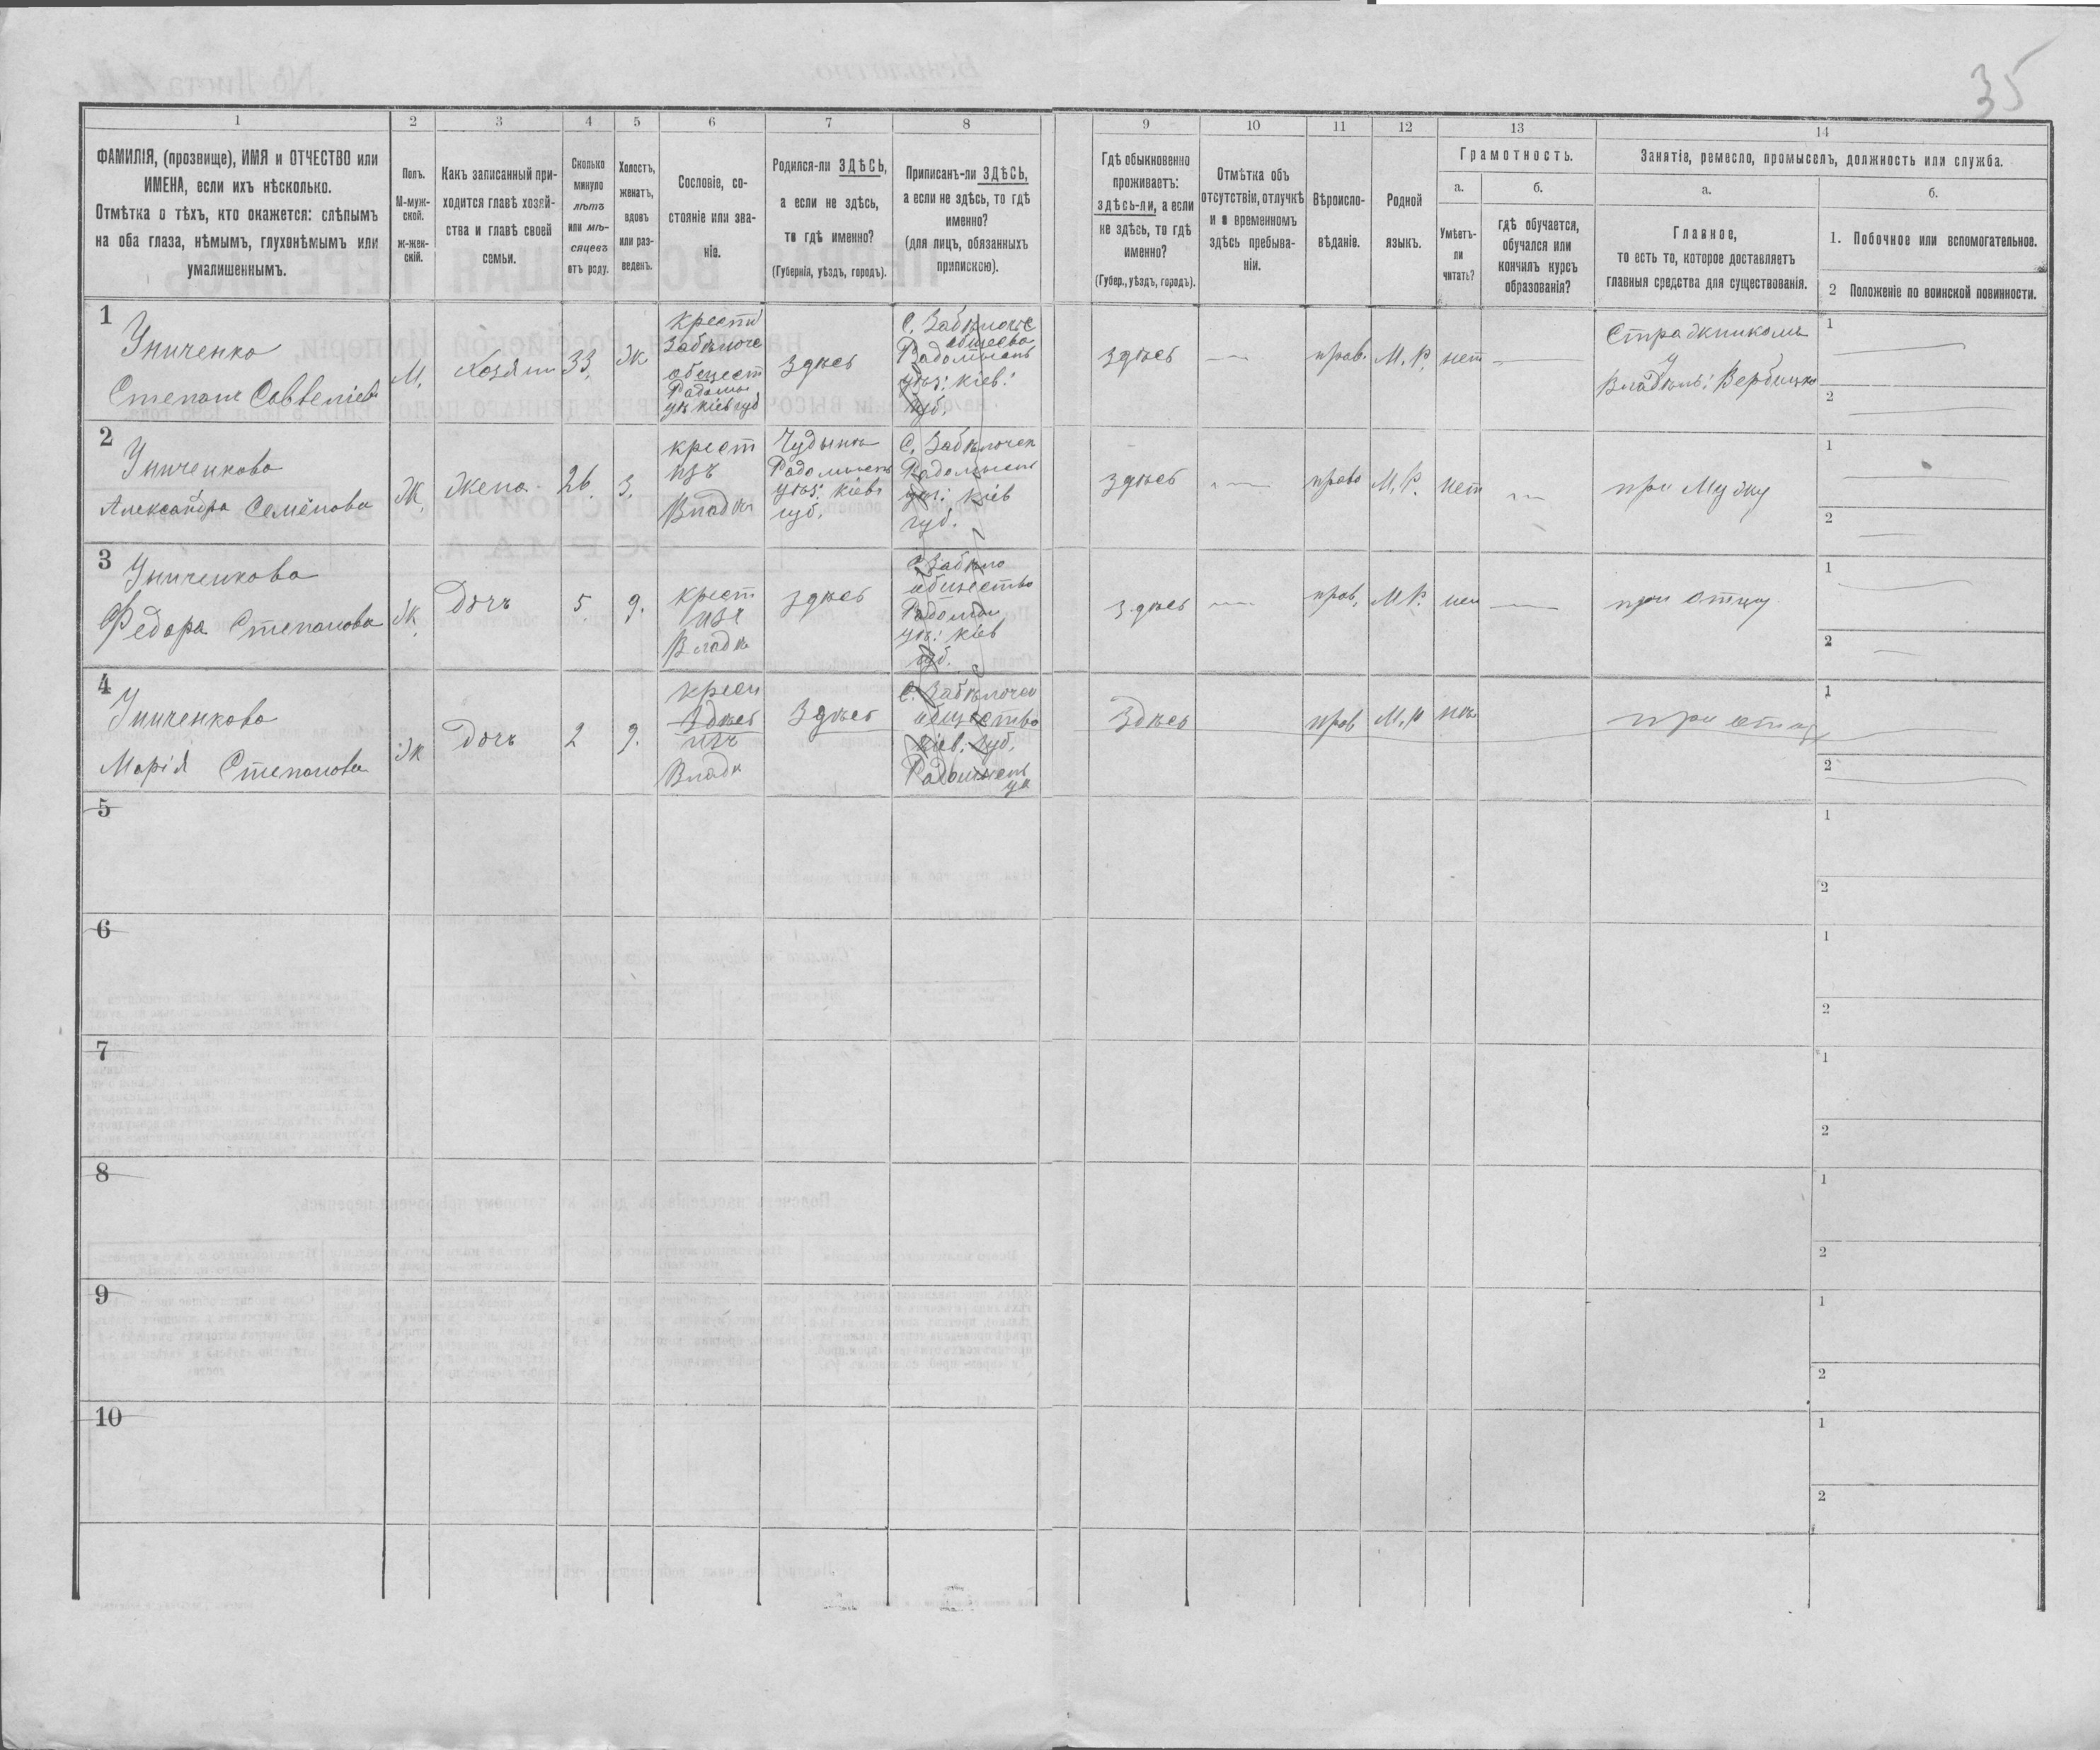 35
1
2
3
4
5
6
7
8
9
10
11
12
13
14
ФАМИЛІЯ, (прозвище), ИМЯ и ОТЧЕСТВО или
ИМЕНА, если ихъ нѣсколько.
Отмѣтка о тѣхъ, кто окажется: слѣпымъ
на оба глаза, нѣмымъ, глухонѣмымъ или
умалишеннымъ.
Полъ.
М-муж-
ской.
ж-жен-
скій.
Какъ записанный при-
ходится главѣ хозяй-
ства и главѣ своей
семьи.
Сколько
минуло
лѣтъ
или мѣ-
сяцевъ
отъ роду.
Холостъ,
женатъ,
вдовъ
или раз-
веденъ.
Сословіе, со-
стояніе или зва-
ніе.
Родился-ли ЗДѢСЬ,
а если не здѣсь,
то гдѣ именно?
(Губернія, уѣздъ, городъ).
Приписанъ-ли ЗДѢСЬ,
а если не здѣсь, то гдѣ
именно?
(для лицъ, обязанныхъ
припискою).
Гдѣ обыкновенно
проживаетъ:
здѣсь-ли, а если
не здѣсь, то гдѣ
именно?
(Губер., уѣздъ, городъ).
Отмѣтка объ
отсутствіи, отлучкѣ
и о временномъ
здѣсь пребыва-
ніи.
Вѣроиспо-
вѣданіе.
Родной
языкъ.
Грамотность.
а.
б.
Умѣетъ-
ли
читать?
гдѣ обучается,
обучался или
кончилъ курсъ
образованія?
Занятіе, ремесло, промыселъ, должность или служба.
а.
б.
Главное,
то есть то, которое доставляетъ
главныя средства для существованія.
1. Побочное или вспомогательное.
2 Положеніе по воинской повинности.
1
Униченко
Степанъ Савеліевъ
М.
Хозяин
33.
Ж
здѣсь
здѣсь
прав.
М. Р.
нет
у
1
2
2
Униченкова
Александра Семенова
Ж.
Жена
26.
з.
крест
изъ
Владѣ
Радомысль
губ.
губ.
здѣсь
право
М. Р.
нет
при Мужу
1
2
3
Униченкова
Федора Степанова
Ж.
Дочь
5.
д.
крест
изъ
Владѣ
здѣсь
общество
губ.
здѣсь
прав.
М Р.
при отцу
1
2
4
Униченкова
Марія Степанова
Ж
Дочь
2
д.
здѣсь
изъ
Владѣ
здѣсь
общество
Кіев. губ.
здѣсь
прав
М. Р
при отцу
1
2
5
1
2
6
1
2
7
1
2
8
1
2
9
1
2
10
1
2